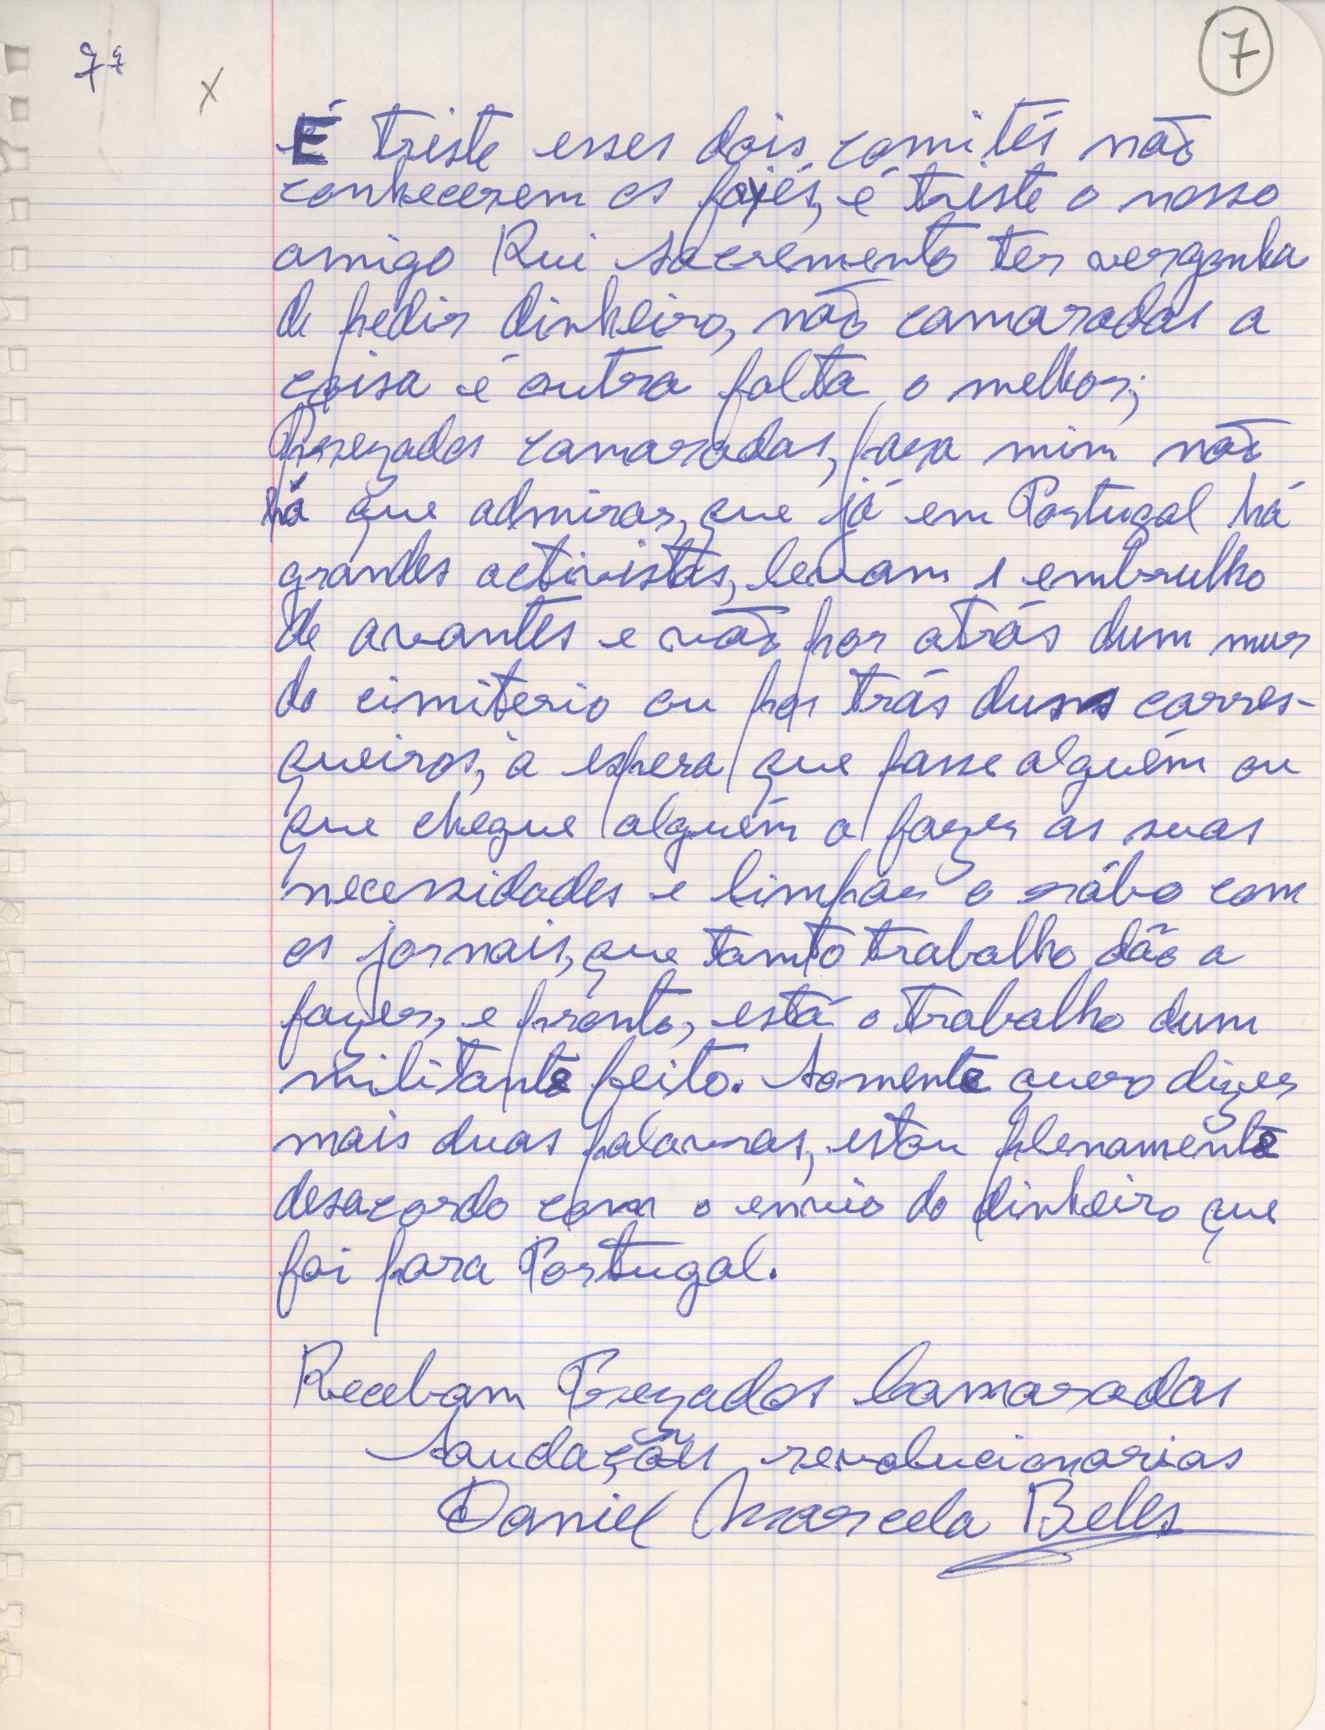 7ª
X
7
É triste esses dois comités não
conhecerem os foyés, é triste o nosso
amigo Rui Sacremento ter vergonha
de pedir dinheiro, não camaradas a
coisa é outra falta o melhor;
Prezados camaradas, para mim não
há que admirar, que já em Portugal há
grandes activistas, levam 1 embrulho
de avantes e vão por atrás dum mur
do cimiterio ou por trás duns carras-
queiros, à espera que passe alguém ou
que chegue alguém a fazer as suas
necessidades e limpar o rábo com
os jornais, que tamto trabalho dão a
fazer, e pronto, está o trabalho dum
militante feito. Somente quero dizer
mais duas palavras, estou plenamente
desacordo com o envio do dinheiro que
foi para Portugal.
Recebam Prezados Camaradas
Saudações revolucionarias
Daniel Marcela Belles